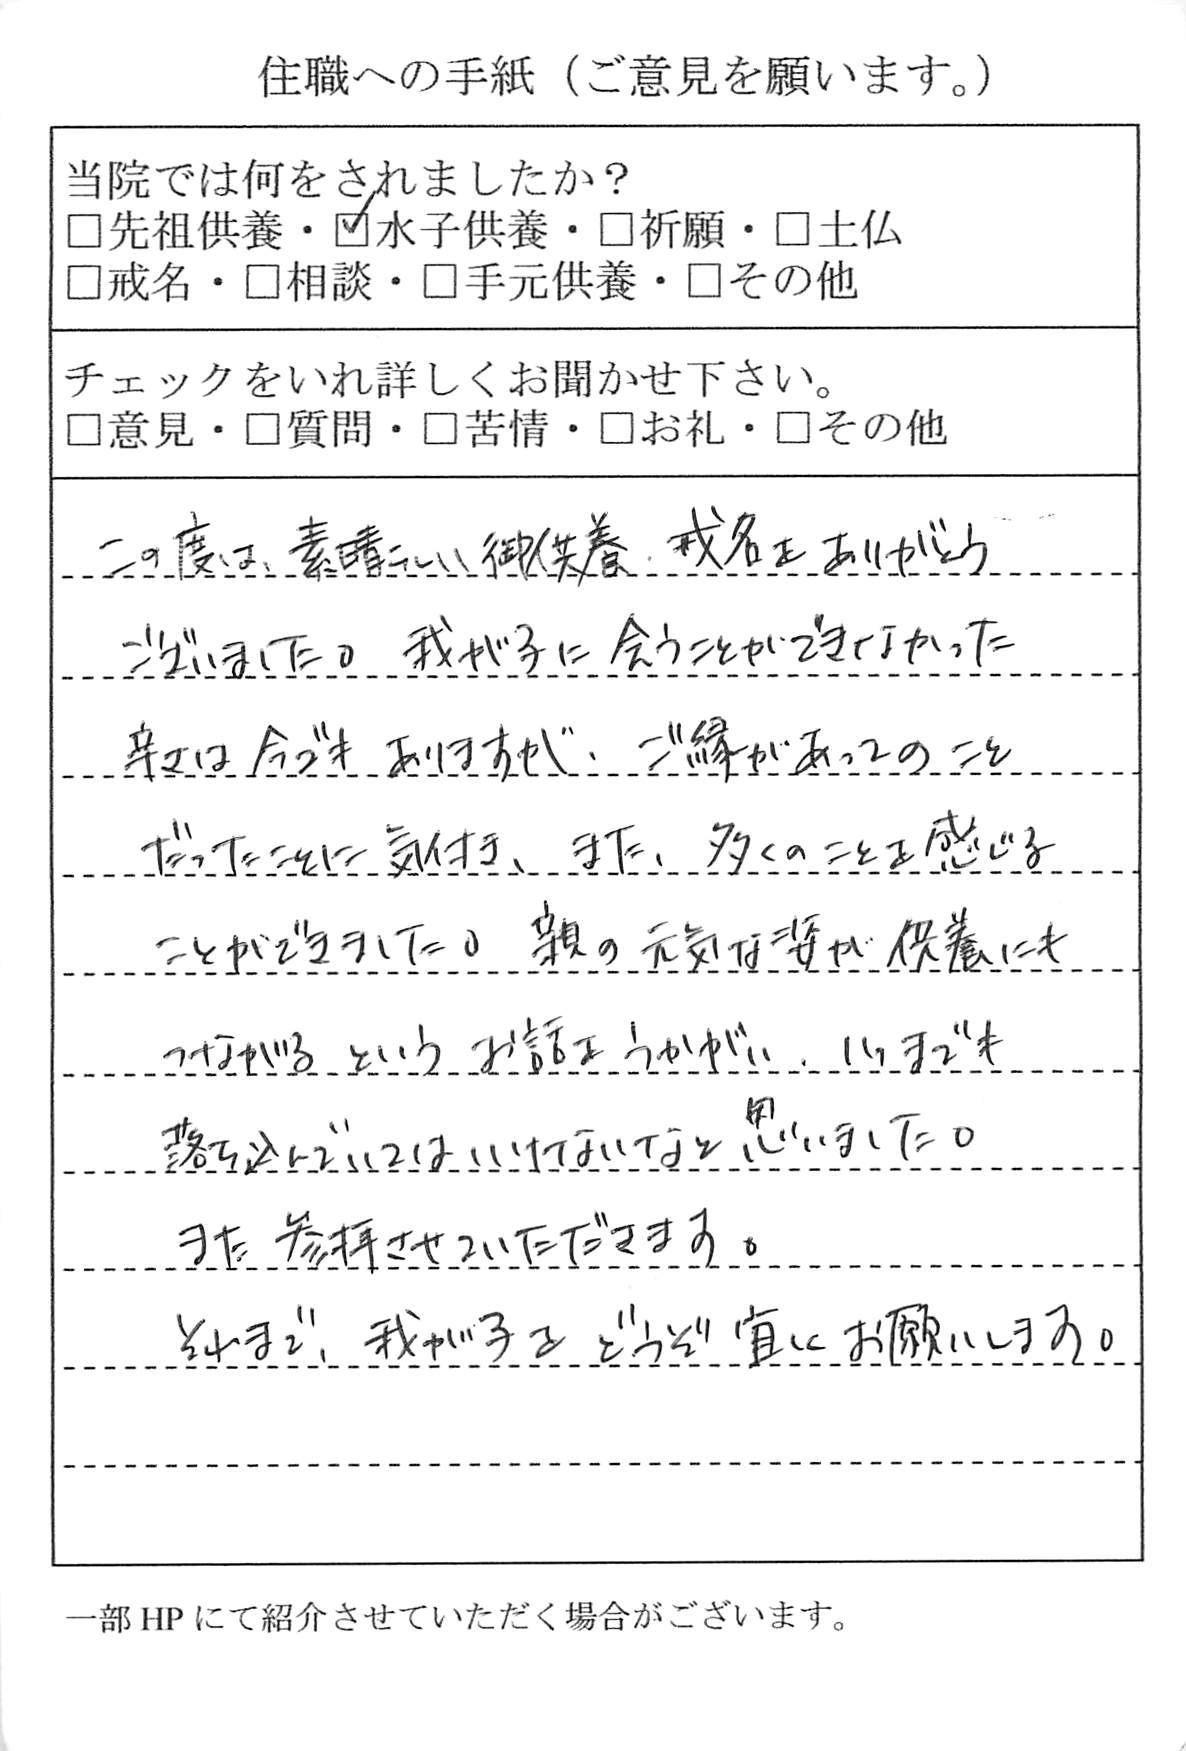 住職への手紙（ご意見を願います。）
当院では何をされましたか？
□先祖供養・☑水子供養・□祈願・□土仏
□戒名・□相談・□手元供養・□その他
チェックをいれ詳しくお聞かせ下さい。
□意見・□質問・□苦情・□お礼・□その他
この度は、素晴らしい御供養、戒名をありがとう
ございました。我が子に会うことができなかった
辛さは今でもありますが、ご縁があってのこと
だったことに気付き、また、多くのことを感じる
ことができました。親の元気な姿が供養にも
つながるというお話をうかがい、いつまでも
落ち込んでいてはいけないなと思いました。
また参拝させていただきます。
それまで、我が子をどうぞ宜しくお願いします。
一部 HP にて紹介させていただく場合がございます。